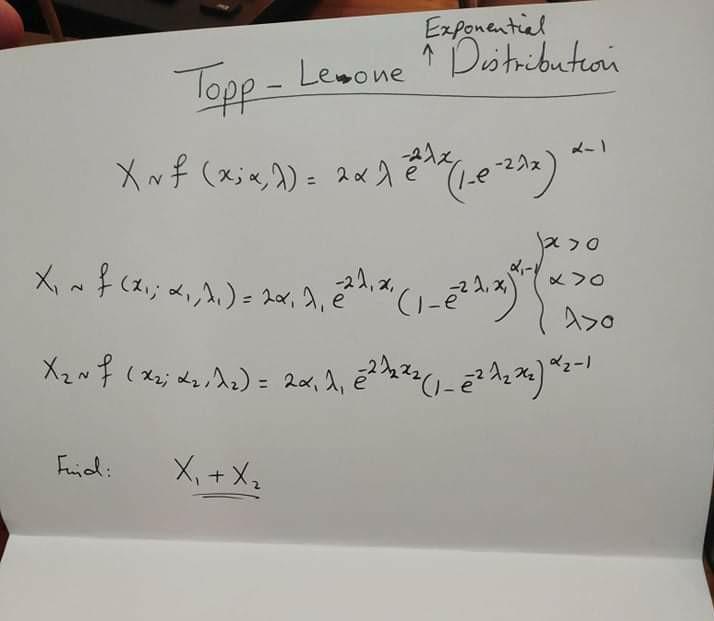 Exponential
Topp - Leone ↑ Distribution
X ~ f (x; α, λ) = 2αλ e^{-2λx} (1-e^{-2λx})^{α-1}
X₁ ~ f (x₁; α₁, λ₁) = 2α₁ λ₁ e^{-2λ₁x₁} (1-e^{-2λ₁x₁})^{α₁-1}
x > 0
α > 0
λ > 0
X₂ ~ f (x₂; α₂, λ₂) = 2α₁ λ₁ e^{-2λ₂x₂} (1-e^{-2λ₂x₂})^{α₂-1}
Find: X₁ + X₂